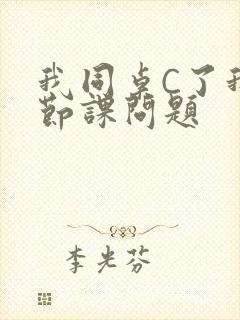 我同卓C了我
節課問題
李光芬